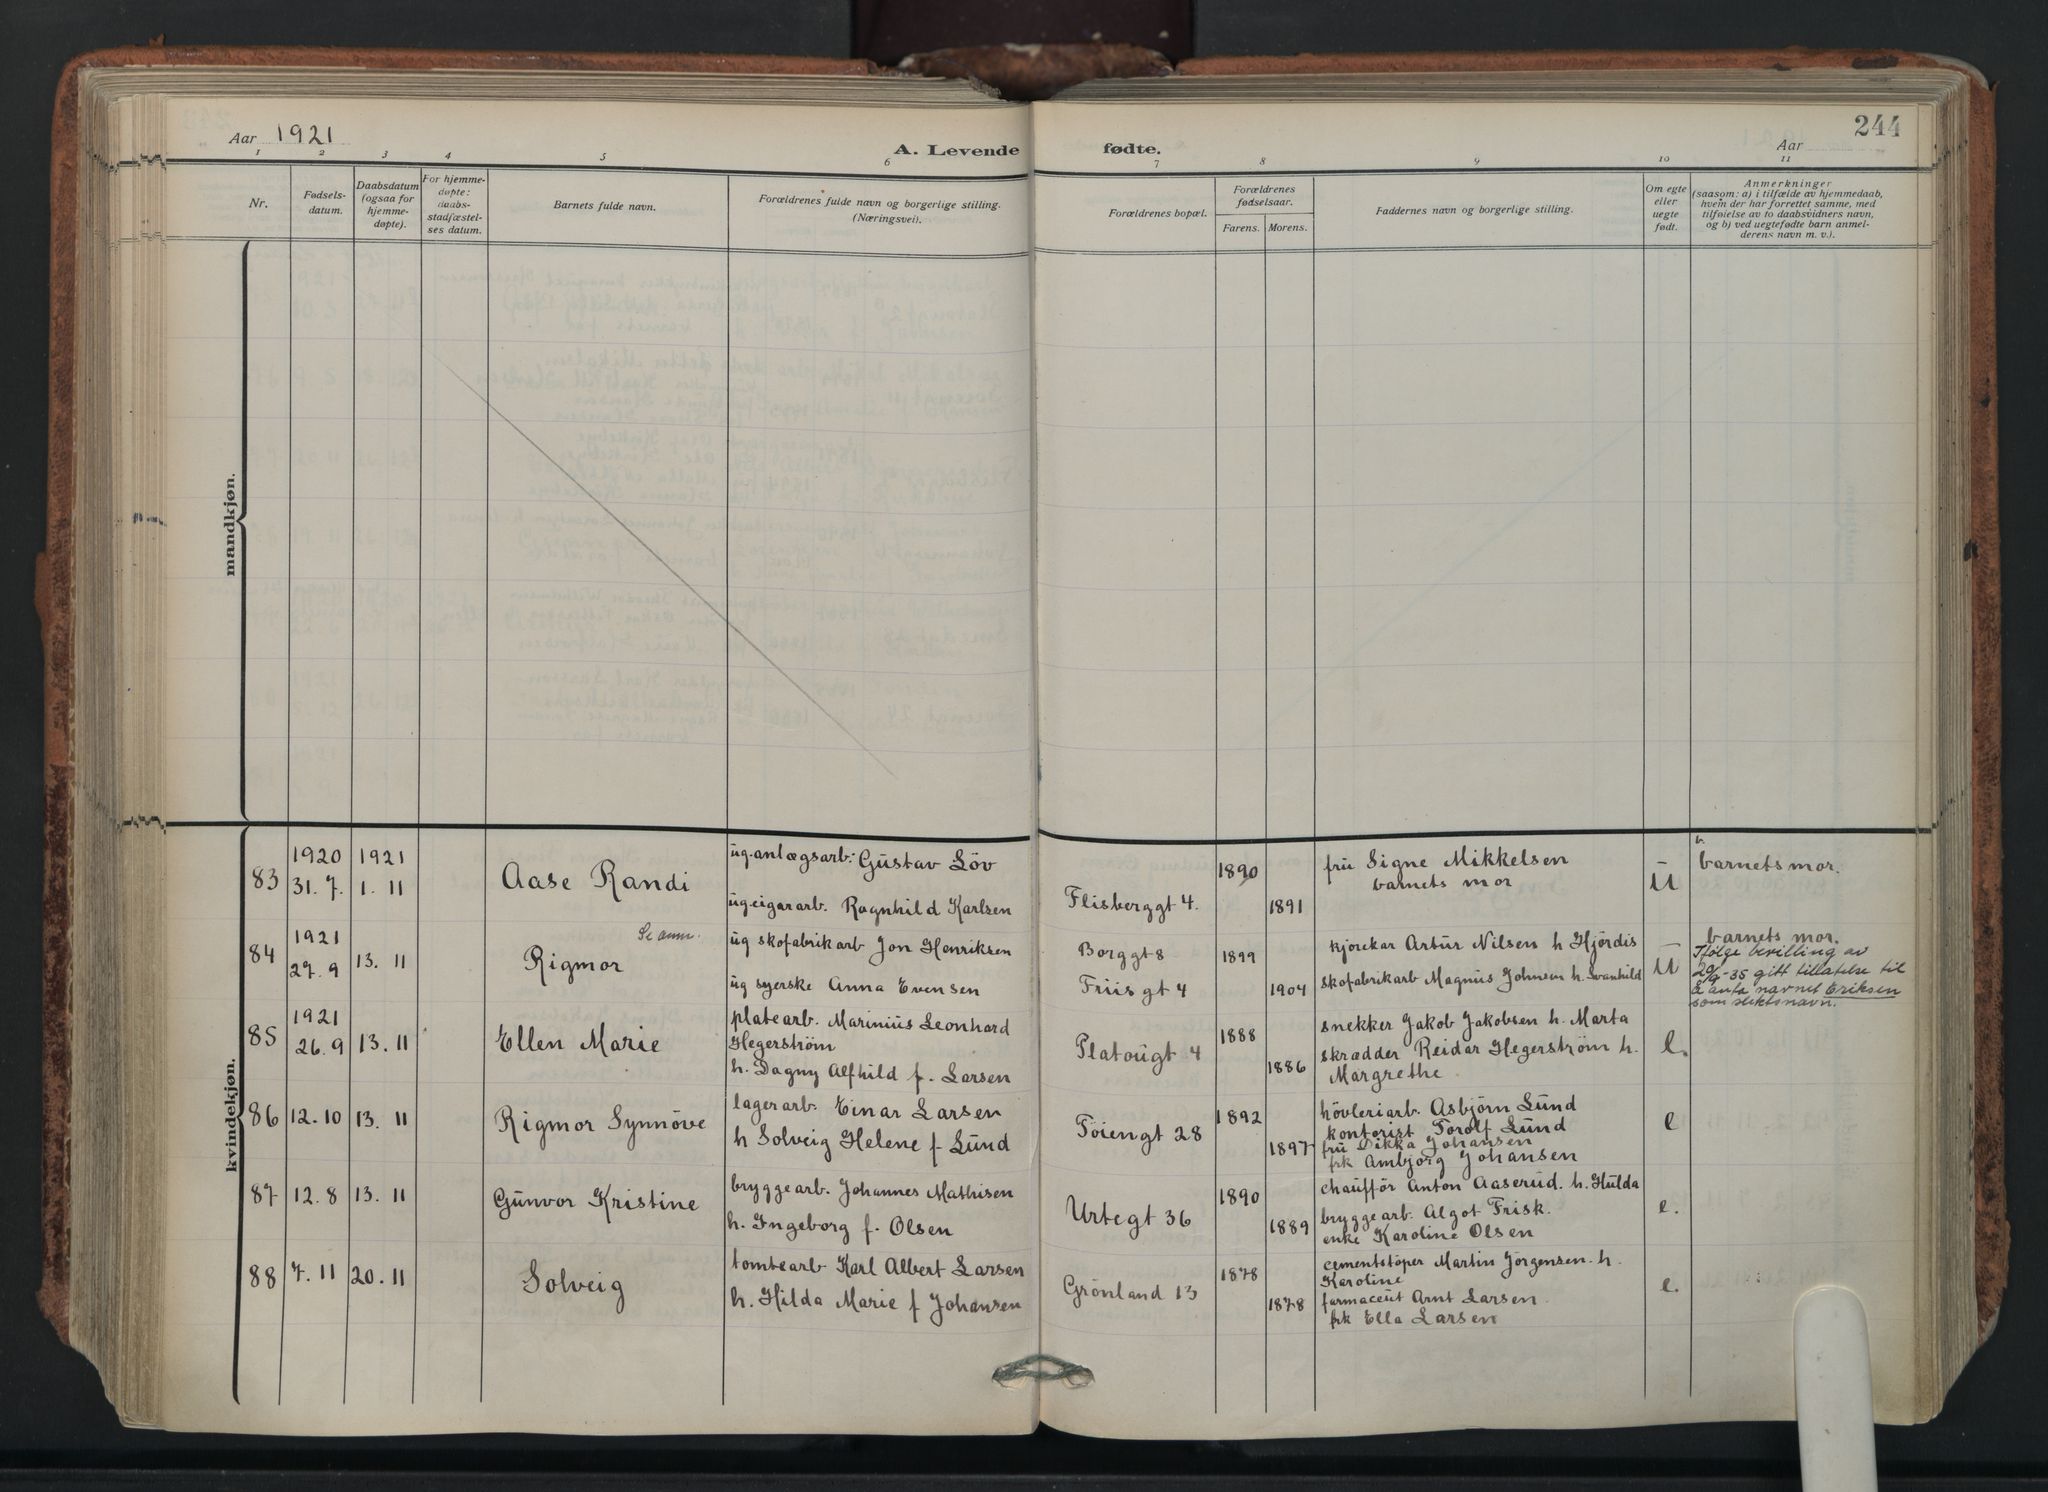 Aar 1921
A. Levende fødte.
Aar
244
1 2 3 4 5 6 7 8 9 10 11
Nr.
Fødsels-
datum.
Daabsdatum
(ogsaa for
hjemme-
døpte).
For hjemme-
døpte:
daabs-
stadfæstel-
ses datum.
Barnets fulde navn.
Forældrenes fulde navn og borgerlige stilling.
(Næringsvei).
Forældrenes bopæl.
Forældrenes
fødselsaar.
Farens. Morens.
Faddernes navn og borgerlige stilling.
Om egte
eller
uegte
født.
Anmerkninger
(saasom: a) i tilfælde av hjemmedaab,
hvem der har forrettet samme, med
tilføielse av to daabsvidners navn,
og b) ved uegtefødte barn anmel-
derens navn m. v.).
mandkjøn.
kvindekjøn.
83
1920
31. 7.
1921
1. 11
Aase Randi
ug. anlægsarb: Gustav Löv
ug. cigararb. Ragnhild Karlsen
Flisberggt 4.
1890
1891
fru Signe Mikkelsen
barnets mor
U
barnets mor.
84
1921
27. 9
13. 11
Se anm.
Rigmor
ug skofabrikarb Jon Henriksen
ug syerske Anna Evensen
Borggt 8
Friisgt 4
1899
1904
kjörekar Artur Nilsen h Hjördis
skofabrikarb Magnus Johnsen h. Svanhild
U
barnets mor.
Ifølge bevilling av
20/9-35 gitt tillatelse til
å anta navnet Eriksen
som slektsnavn.
85
1921
26. 9
13. 11
Ellen Marie
platearb. Marinius Leonhard
Hegerström
h. Dagny Alfhild f. Larsen
Platougt 4
1888
1886
snekker Jakob Jakobsen h. Marta
skrædder Reidar Hegerström h.
Margrethe
e.
86
12. 10
13. 11
Rigmor Synnöve
lagerarb. Einar Larsen
h Solveig Helene f Lund
Töiengt 28
1892
1897
hövleriarb. Asbjörn Lund
kontorist Torolf Lund
fru Dikka Johansen
frk Ambjörg Johansen
e
87
12. 8
13. 11
Gunvor Kristine
bryggearb. Johannes Mathisen
h. Ingeborg f. Olsen
Urtegt 36
1890
1889
chaufför Anton Aaserud. h. Hulda
bryggearb. Algot Frisk.
enke Karoline Olsen
e.
88
7. 11
20. 11
Solveig
tomtearb Karl Albert Larsen
h. Hilda Marie f Johansen
Grönland 13
1878
1878
cementstöper Martin Jörgensen. h.
Karoline
farmaceut Arnt Larsen.
frk Ella Larsen
e.